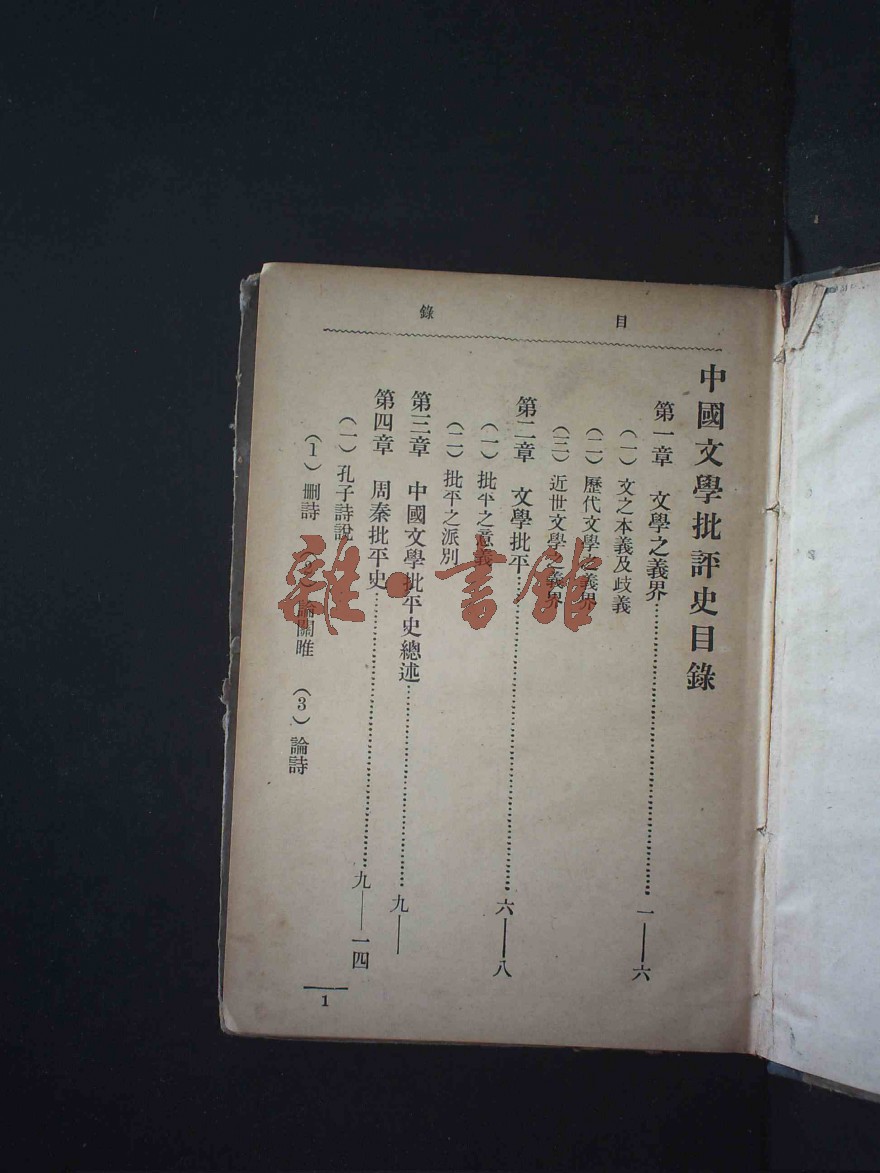 目錄
中國文學批評史目錄
第一章 文學之義界…………一——六
（一）文之本義及歧義
（二）歷代文學之義界
（三）近世文學之義界
第二章 文學批平…………六——八
（一）批平之意義
（二）批平之派別
第三章 中國文學批平史總述…………九——
第四章 周秦批平史…………九——一四
（一）孔子詩說
（1）刪詩 （2）論關唯 （3）論詩
1
雜·書館